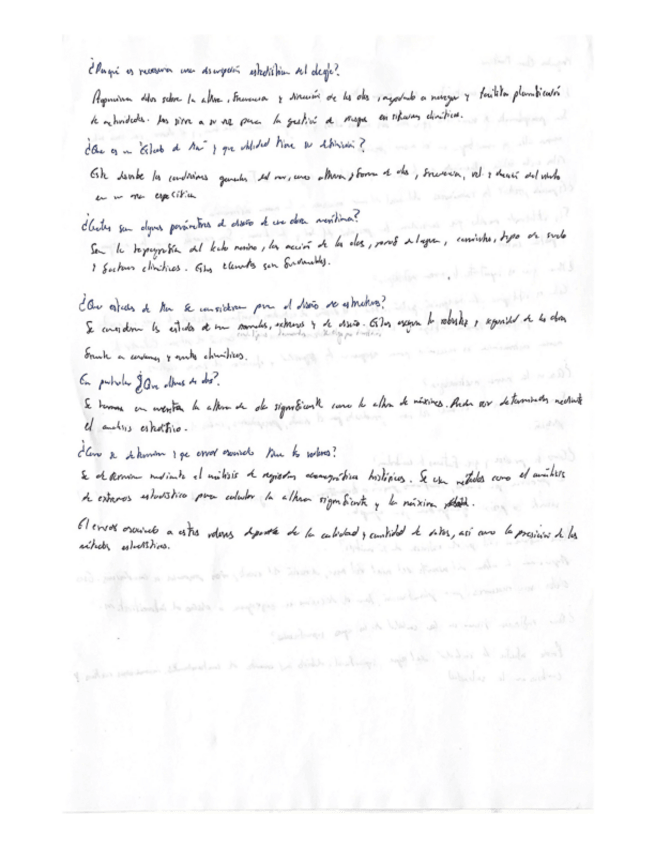 ¿Porqué es necesaria una descripción estadística del oleaje?
Proporciona datos sobre la altura, frecuencia y dirección de las olas, ayudando a navegar y facilitar planificación
de actividades. Nos sirve a su vez para la gestión de riesgo en sistemas climáticos.
¿Que es un "Estado de Mar" y que utilidad tiene su definición?
Este describe las condiciones generales del mar, como altura, forma de ola, frecuencia, vel. y dirección del viento
en un área específica
¿Cuáles son algunos parámetros de diseño de una obra marítima?
Son la topografía del lecho marino, la acción de las olas, nivel de agua, corrientes, tipo de suelo
y factores climáticos. Estos elementos son fundamentales.
¿Que estados de Mar se consideran para el diseño de estructuras?
Se consideran los estados de mar normales, extremos y de diseño. Estos aseguran la robustez y seguridad de las obras
frente a condiciones y eventos climáticos.
En particular ¿Que alturas de ola?.
Se toman en cuenta la altura de ola significante como la altura de máximas. Puede ser determinada mediante
el análisis estadístico.
¿Como se determinan y que error asociado tiene los valores?
Se determinan mediante el análisis de registros oceanográficos históricos. Se usan métodos como el análisis
de extremos estadístico para calcular la altura significante y la máxima
El error asociado a estos valores depende de la calidad y cantidad de datos, así como la precisión de los
métodos estadísticos.